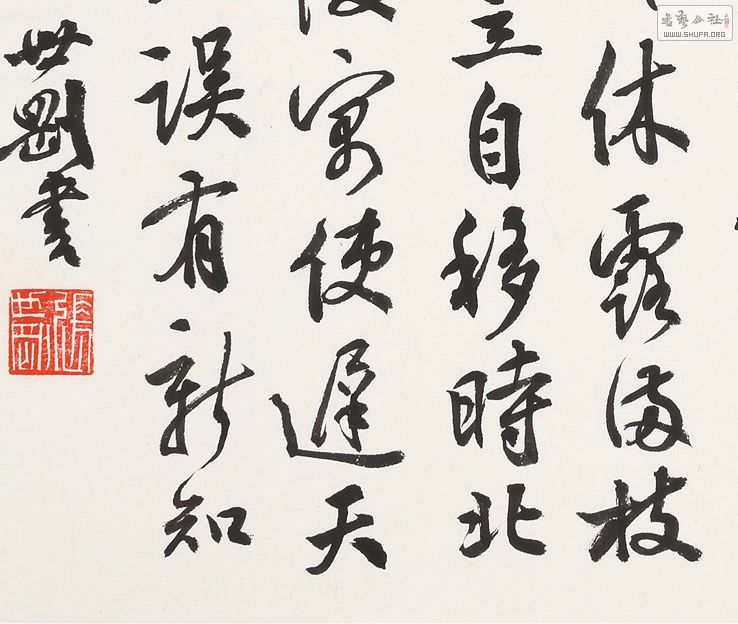 休露满枝
立自移時北
寓使遲天
误有新知
世剛書
張世剛
書藝公社
WWW.SHUFA.ORG